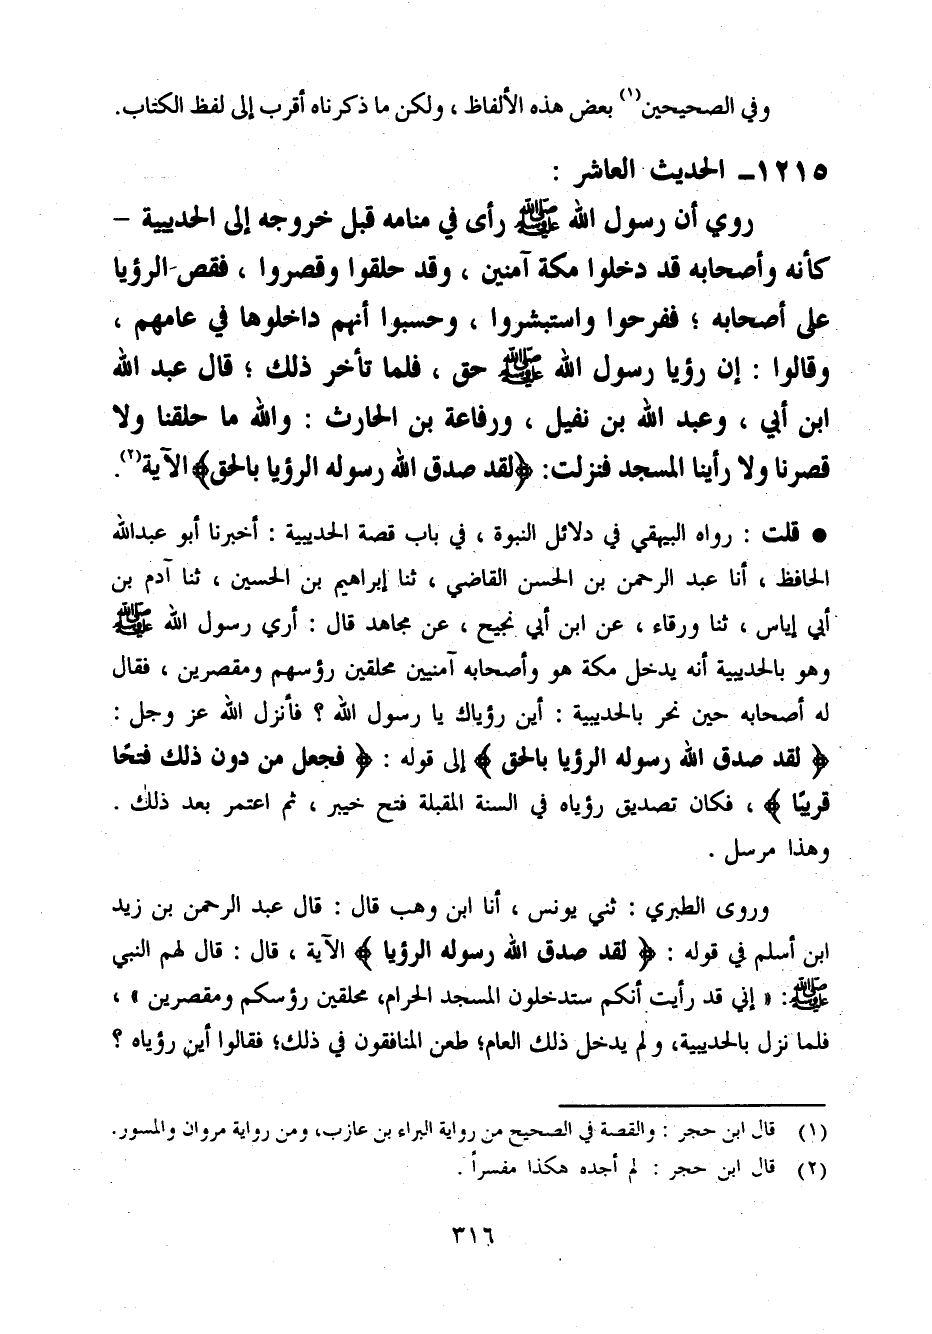 وفي الصحيحين(١) بعض هذه الألفاظ ، ولكن ما ذكرناه أقرب إلى لفظ الكتاب.
١٢١٥ـ الحديث العاشر :
روي أن رسول الله ﷺ رأى في منامه قبل خروجه إلى الحديبية –
كأنه وأصحابه قد دخلوا مكة آمنين ، وقد حلقوا وقصروا ، فقص الرؤيا
على أصحابه ؛ ففرحوا واستبشروا ، وحسبوا أنهم داخلوها في عامهم ،
وقالوا : إن رؤيا رسول الله ﷺ حق ، فلما تأخر ذلك ؛ قال عبد الله
ابن أبي ، وعبد الله بن نفيل ، ورفاعة بن الحارث : والله ما حلقنا ولا
قصرنا ولا رأينا المسجد فنزلت: ﴿لقد صدق الله رسوله الرؤيا بالحق﴾ الآية(٢).
● قلت : رواه البيهقي في دلائل النبوة ، في باب قصة الحديبية : أخبرنا أبو عبدالله
الحافظ ، أنا عبد الرحمن بن الحسن القاضي ، ثنا إبراهيم بن الحسين ، ثنا آدم بن
أبي إياس ، ثنا ورقاء ، عن ابن أبي نجيح ، عن مجاهد قال : أري رسول الله ﷺ
وهو بالحديبية أنه يدخل مكة هو وأصحابه آمنيين محلقين رؤسهم ومقصرين ، فقال
له أصحابه حين نحر بالحديبية : أين رؤياك يا رسول الله ؟ فأنزل الله عز وجل :
﴿ لقد صدق الله رسوله الرؤيا بالحق ﴾ إلى قوله : ﴿ فجعل من دون ذلك فتحًا
قريبًا ﴾ ، فكان تصديق رؤياه في السنة المقبلة فتح خيبر ، ثم اعتمر بعد ذلك .
وهذا مرسل .
وروى الطبري : ثني يونس ، أنا ابن وهب قال : قال عبد الرحمن بن زيد
ابن أسلم في قوله : ﴿ لقد صدق الله رسوله الرؤيا ﴾ الآية ، قال : قال لهم النبي
ﷺ: « إني قد رأيت أنكم ستدخلون المسجد الحرام، محلقين رؤسكم ومقصرين » ،
فلما نزل بالحديبية، ولم يدخل ذلك العام؛ طعن المنافقون في ذلك؛ فقالوا أين رؤياه ؟
(١) قال ابن حجر : والقصة في الصحيح من رواية البراء بن عازب، ومن رواية مروان والمسور.
(٢) قال ابن حجر : لم أجده هكذا مفسراً .
٣١٦